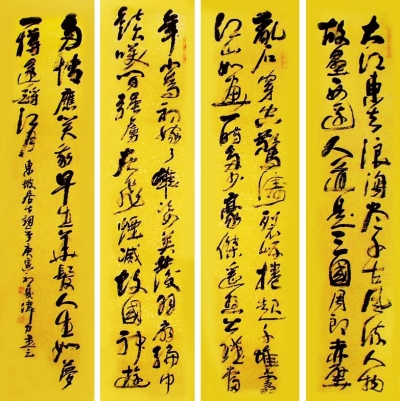 大江東去浪淘盡千古風流人物
故壘西邊人道是三國周郎赤壁
亂石穿空驚濤裂岸捲起千堆雪
江山如畫一時多少豪傑遙想公瑾當
年小喬初嫁了雄姿英發羽扇綸巾
談笑間強虜灰飛煙滅故國神遊
多情應笑我早生華髮人生如夢
一樽還酹江月東坡居士詞于庚寅初夏